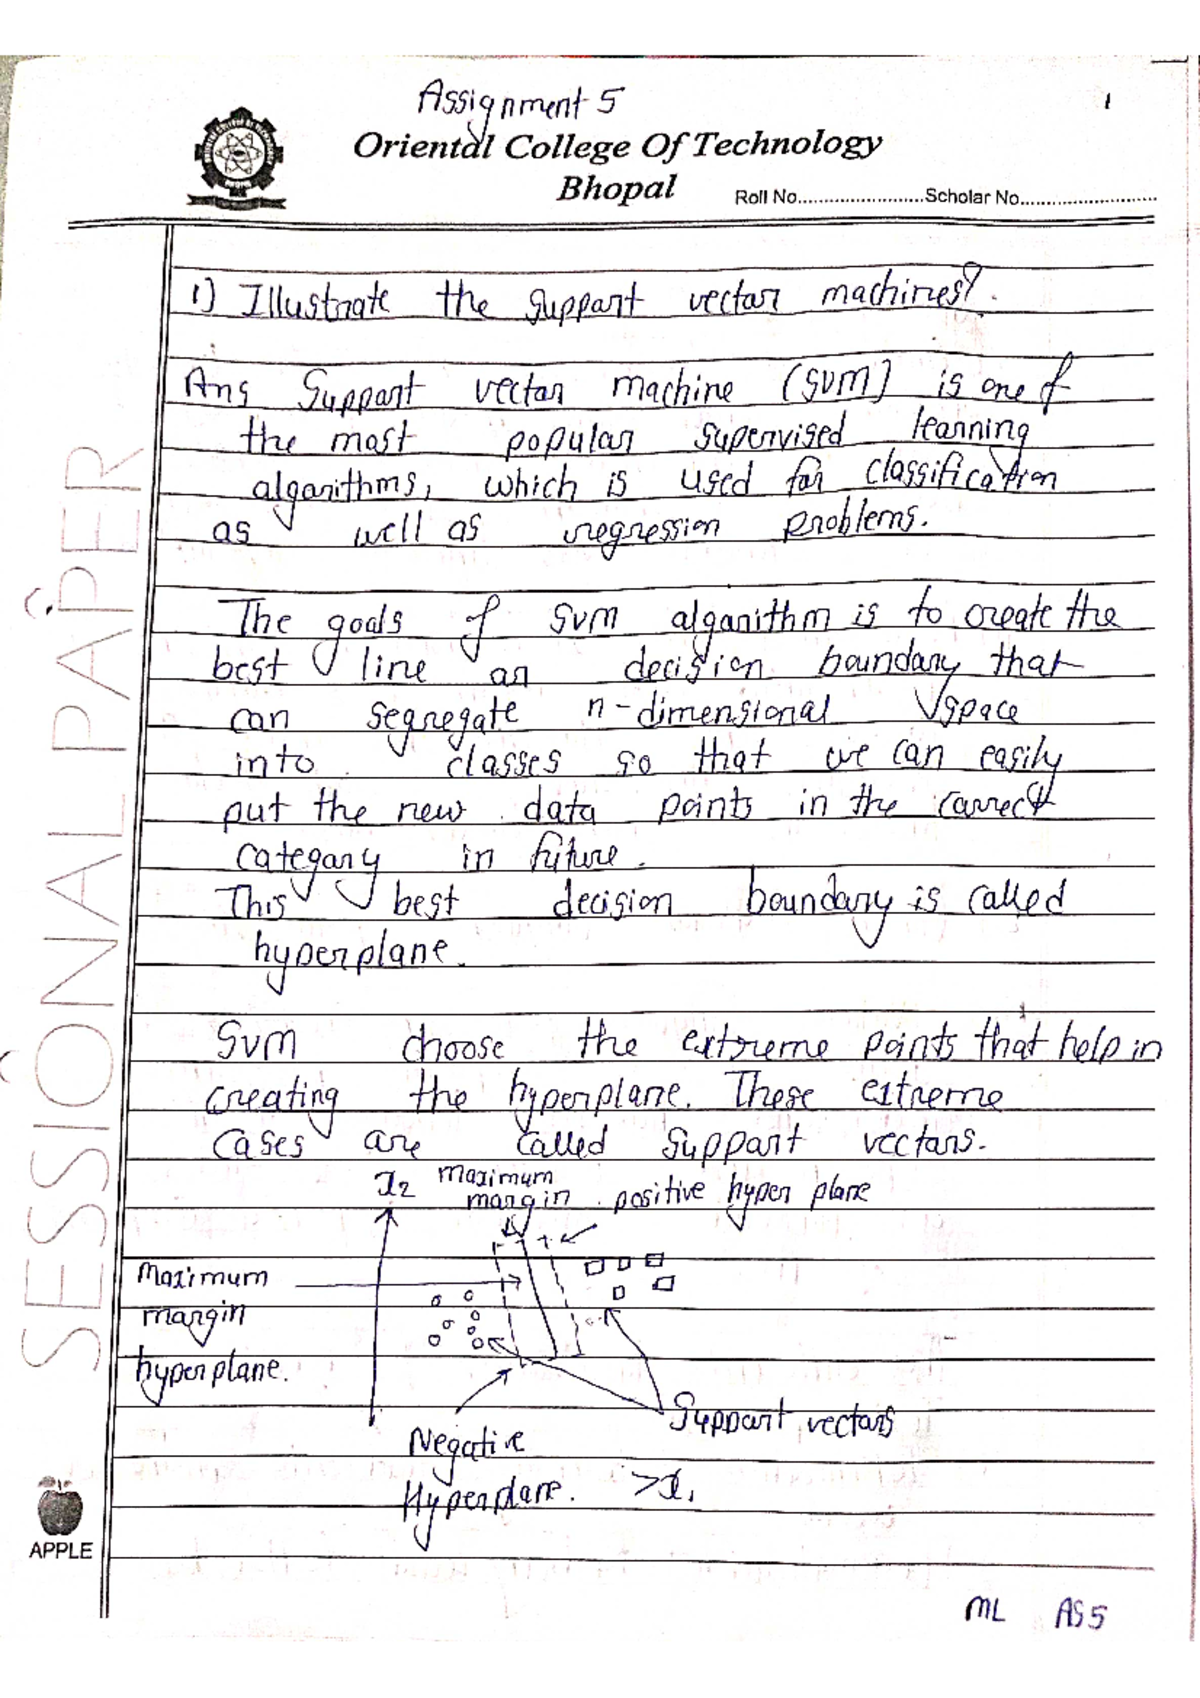 Assignment 5
1
Oriental College Of Technology
Bhopal
Roll No........................Scholar No..........................
1) Illustrate the support vector machines?.
Ans Support vector machine (SVM) is one of
the most popular supervised learning
algorithms, which is used for classification
as well as regression problems.
The goals of SVM algorithm is to create the
best line or decision boundary that
can segregate n-dimensional space
into classes so that we can easily
put the new data points in the correct
category in future.
This best decision boundary is called
hyperplane.
SVM choose the extreme points that help in
creating the hyperplane. These extreme
cases are called support vectors.
x2 Maximum
margin positive hyper plane
Maximum
margin
hyperplane.
Support vectors
Negative
Hyperplane. >x1
SESSIONAL PAPER
APPLE
ML AS5